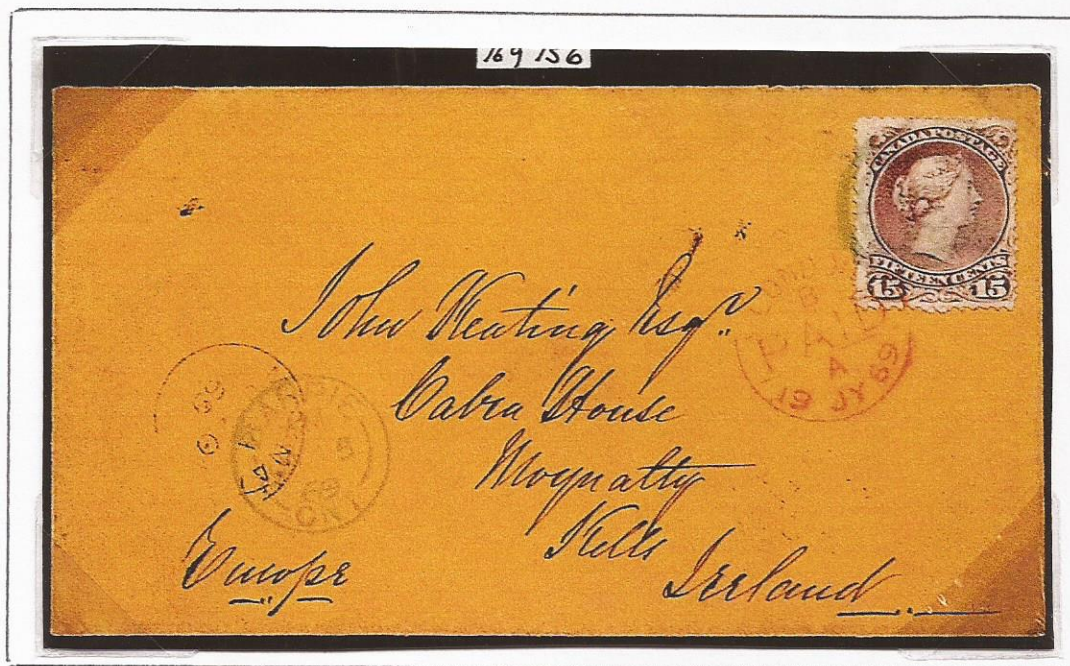 169 156
CANADA POSTAGE
FIFTEEN CENTS
15 15
PAID
A
19 JY 69
John Keating Esqr.
Cabra House
Moynalty
Kells
Ireland
Europe
69